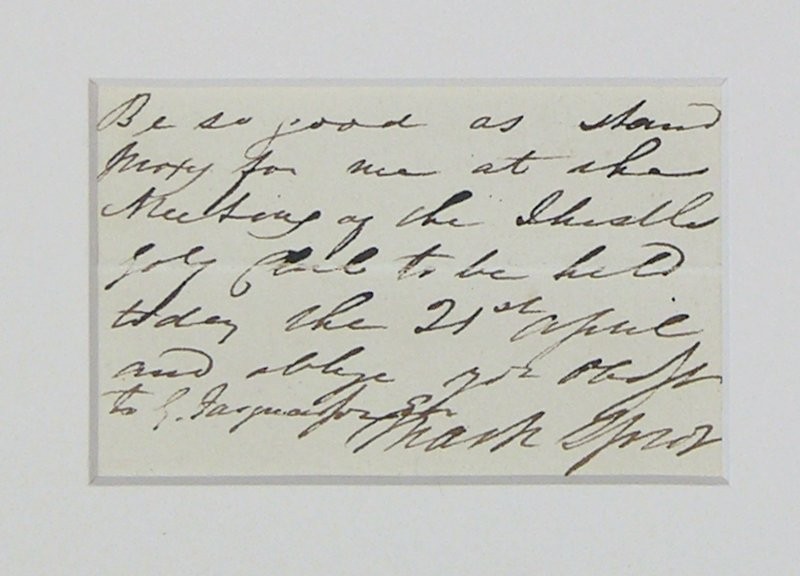 Be so good as stand
Proxy for me at the
Meeting of the Thistle
Golf Club to be held
today the 21st April
and oblige yor Obdt
to G.
Mark Sprot